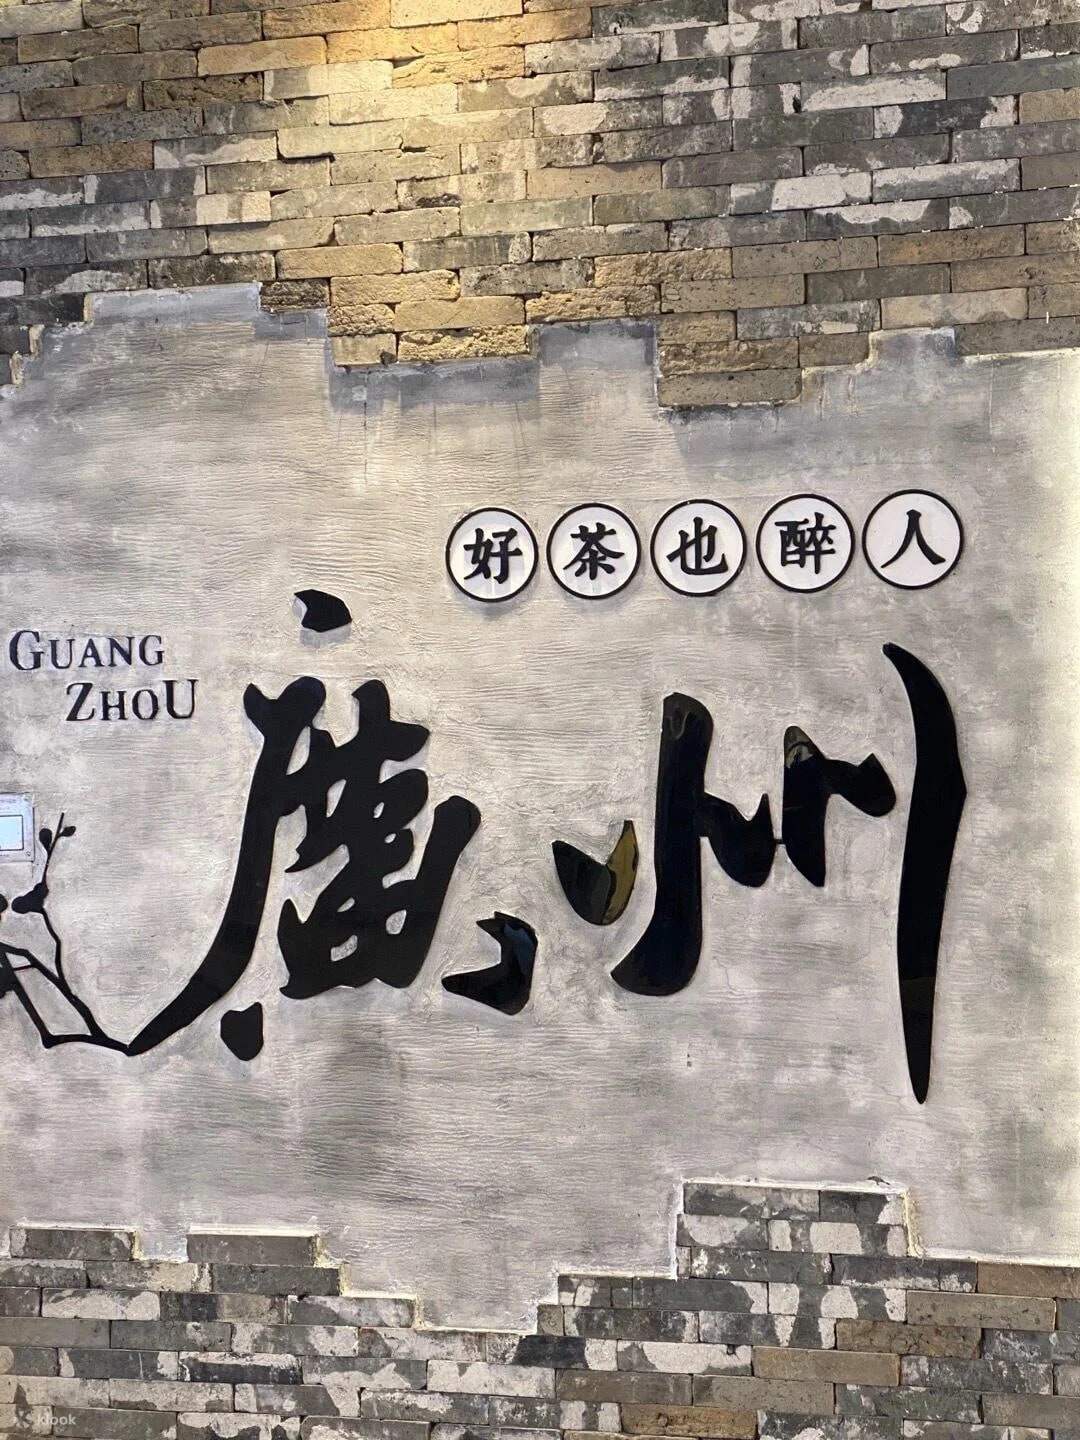 好茶也醉人
GUANG
ZHOU
廣州
klook